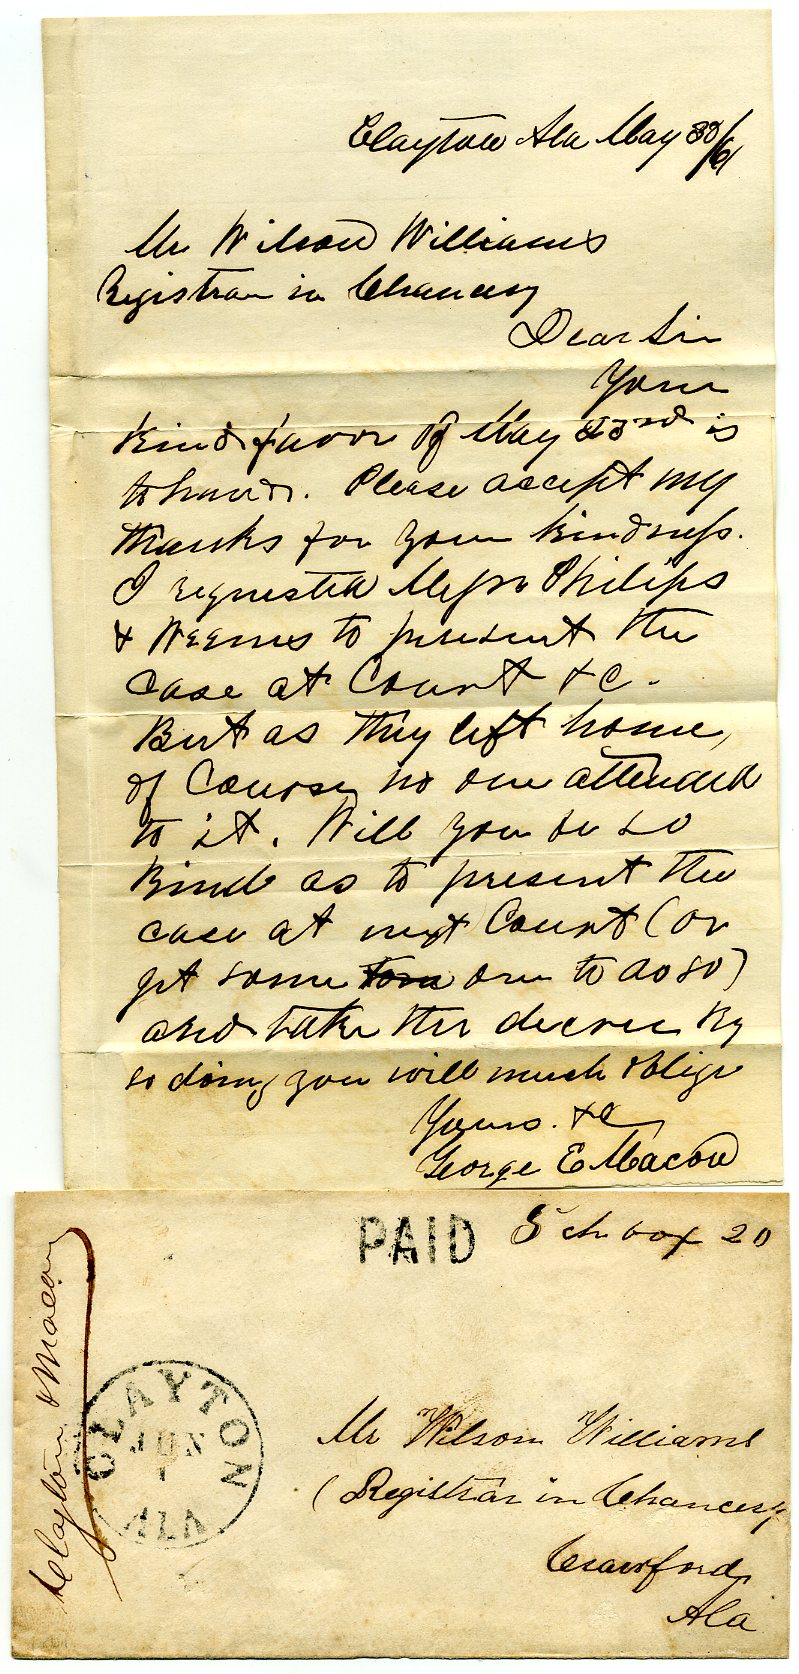 Clayton Ala May 30/61
Mr Wilson Williams
Registrar in Chancery
Dear Sir
Your
kind favor of May 23rd is
to hand. Please accept my
thanks for your kindness.
I requested Messrs Philips
& Weems to present the
case at Court &c.
But as they left home,
of Course, no one attended
to it. Will you be so
kind as to present the
case at next Court (or
get some one to do so)
and take the decree By
so doing you will much oblige
Yours. &c
George E Macon
PAID
5 ch box 20
Clayton & Macon
CLAYTON
JUN
1
ALA
Mr Wilson Williams
(Registrar in Chancery
Crawford
Ala